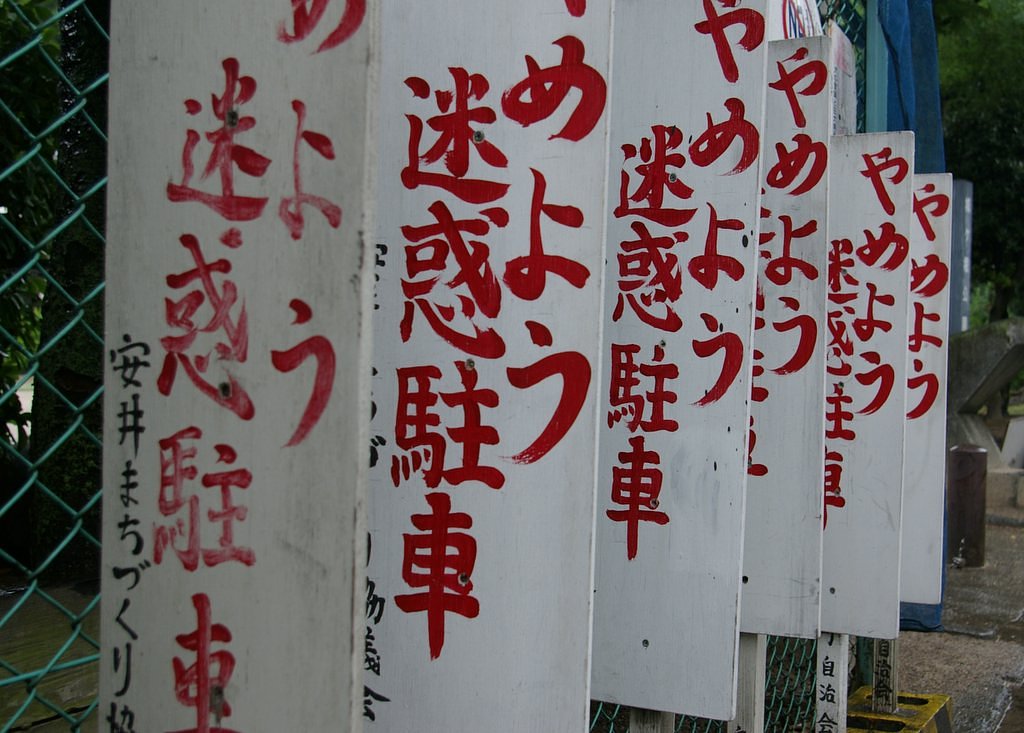 めよう
迷惑駐車
安井まちづくり協
めよう
迷惑駐車
協議会
やめよう
迷惑駐車
やめよう
やめよう
迷惑駐車
やめよう
自治会
自治会